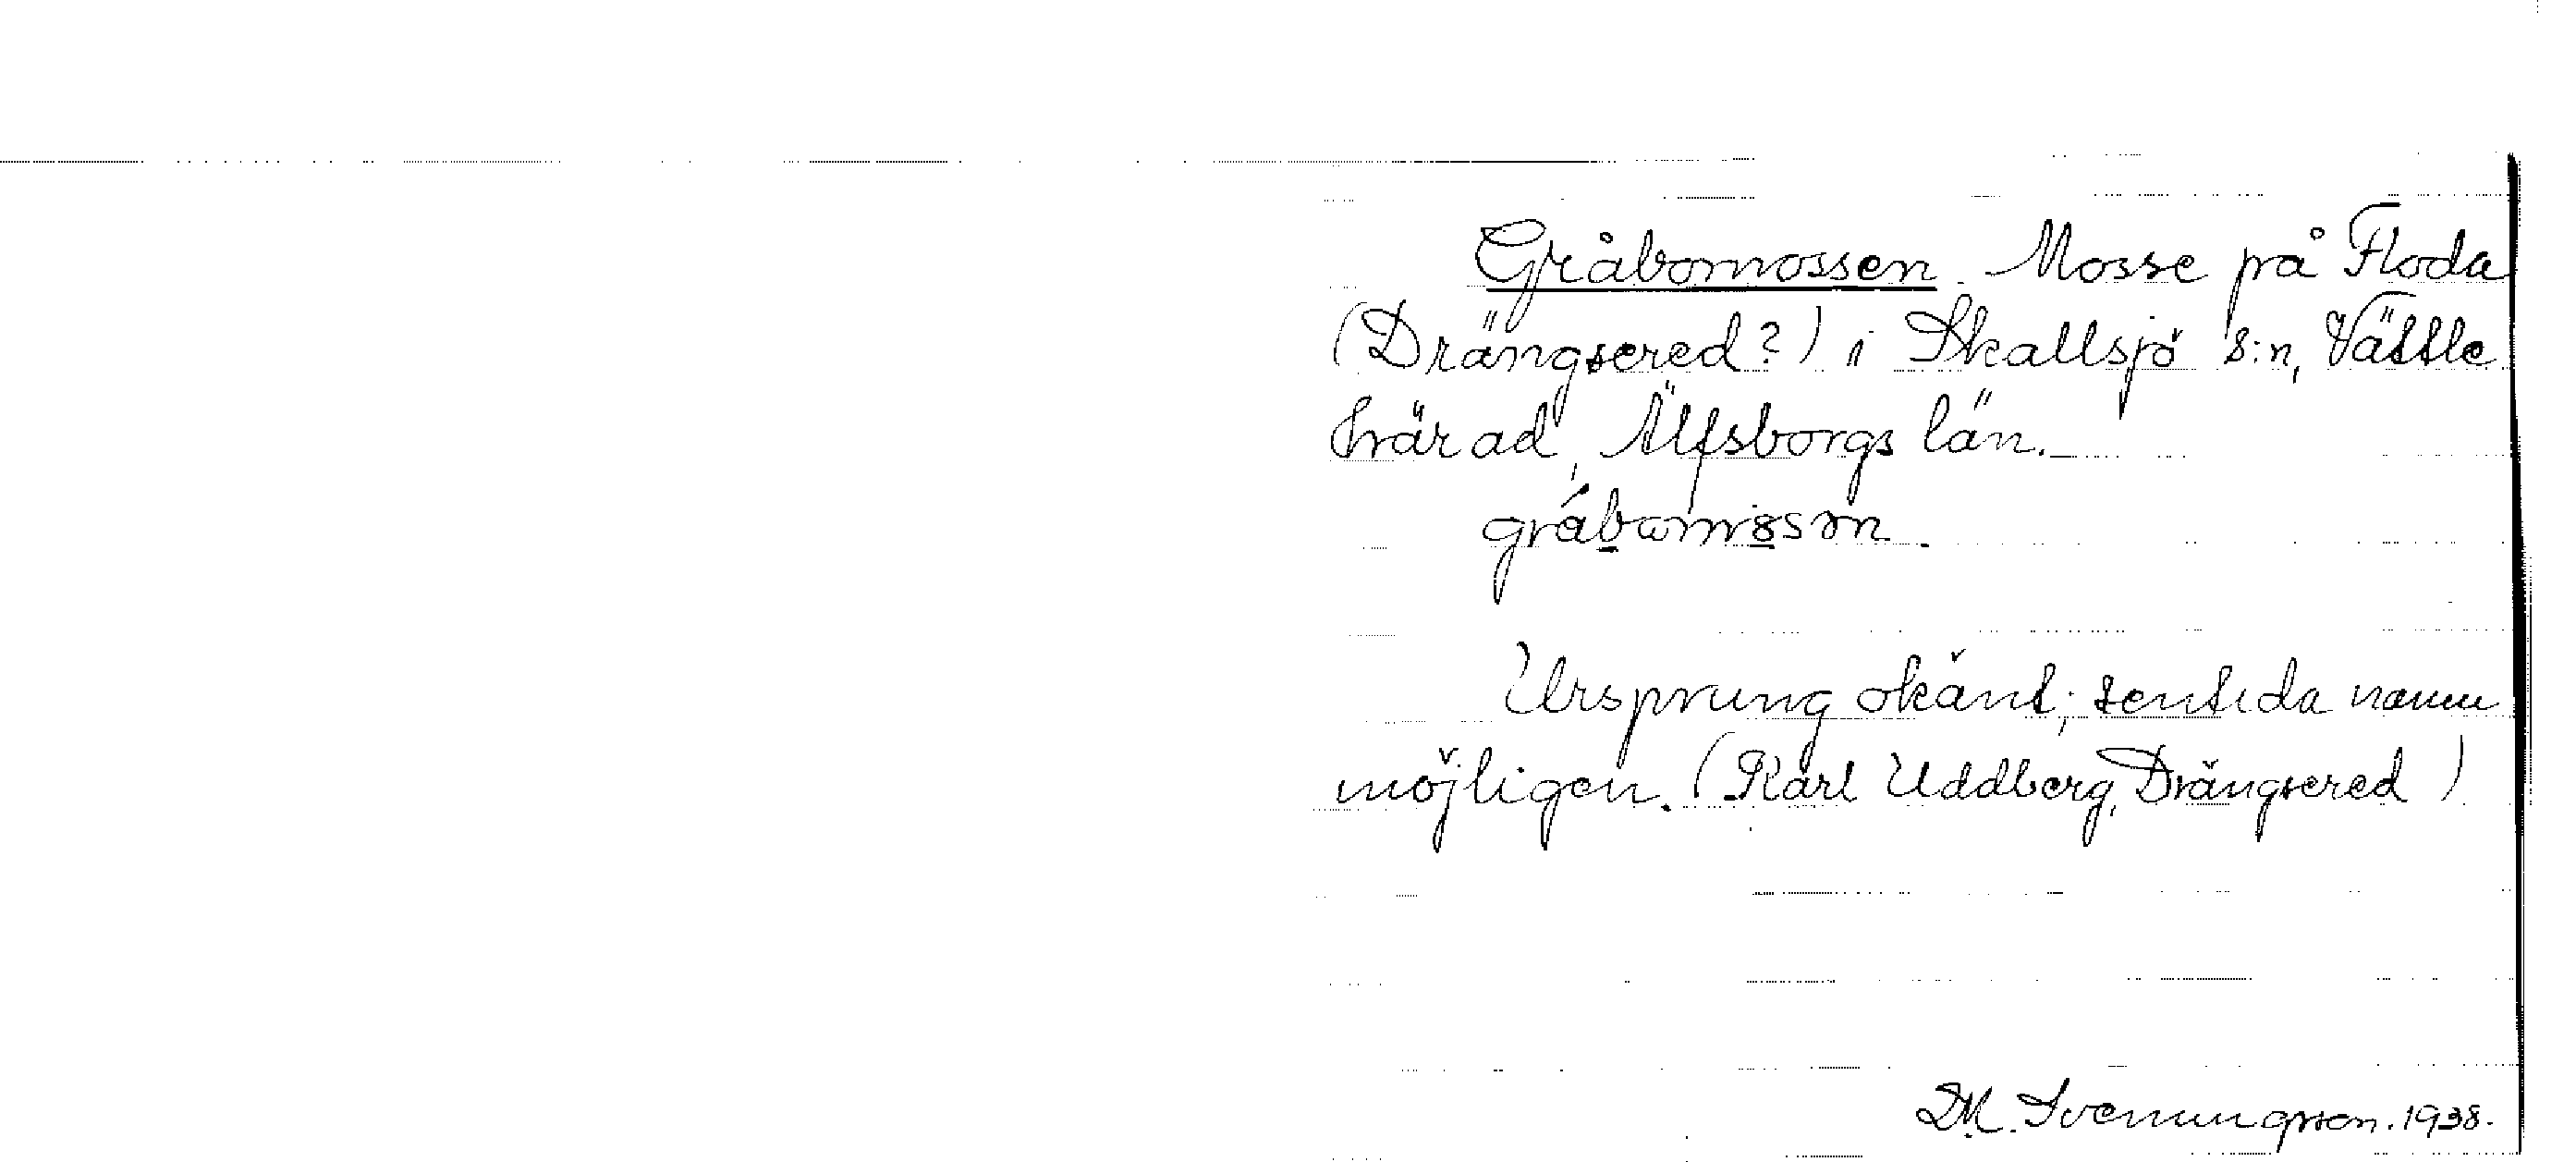 Gråbomossen. Mosse på Floda
(Drängsered?) i Skallsjö s:n, Vättle
härad, Älfsborgs län.

Ursprung okänt; sentida namn
möjligen. (Karl Uddberg, Drängsered)
M. Svenningsson. 1938.